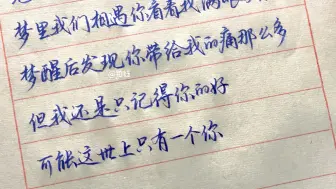 梦里我们相遇你看着我
梦醒后发现你带给我的痛那么多
但我还是只记得你的好
可能这世上只有一个你